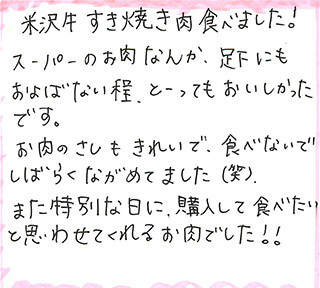 米沢牛 すき焼き肉 食べました!
スーパーのお肉なんか、足下にも
およばない程、とーってもおいしかった
です。
お肉のさしもきれいで、食べないで
しばらくながめてました(笑).
また特別な日に、購入して食べたい
と思わせてくれるお肉でした!!